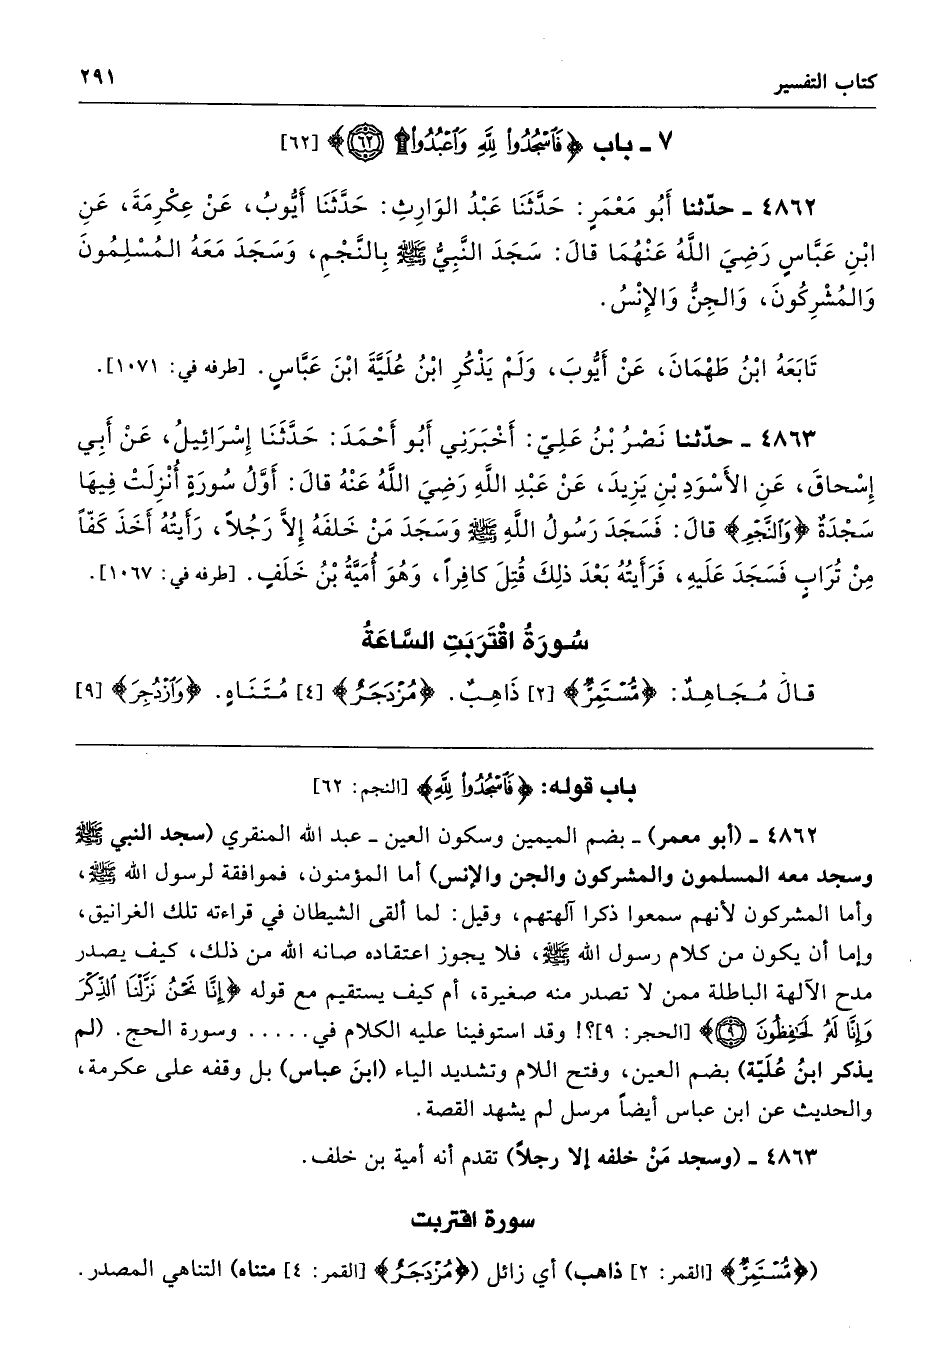 كتاب التفسير
٢٩١
٧ ـ باب ﴿فَٱسْجُدُوا۟ لِلَّهِ وَٱعْبُدُوا۟ ۩ ٦٢﴾ [٦٢]
٤٨٦٢ ـ حدّثنا أَبُو مَعْمَرٍ: حَدَّثَنَا عَبْدُ الوَارِثِ: حَدَّثَنَا أَيُّوبُ، عَنْ عِكْرِمَةَ، عَنِ
ابْنِ عَبَّاسٍ رَضِيَ اللَّهُ عَنْهُمَا قالَ: سَجَدَ النَّبِيُّ ﷺ بِالنَّجْمِ، وَسَجَدَ مَعَهُ المُسْلِمُونَ
وَالمُشْرِكُونَ، وَالجِنُّ وَالإِنْسُ.
تَابَعَهُ ابْنُ طَهْمَانَ، عَنْ أَيُّوبَ، وَلَمْ يَذْكُرِ ابْنُ عُلَيَّةَ ابْنَ عَبَّاسٍ. [طرفه في: ١٠٧١].
٤٨٦٣ ـ حدّثنا نَصْرُ بْنُ عَلِيّ: أَخْبَرَنِي أَبُو أَحْمَدَ: حَدَّثَنَا إِسْرَائِيلُ، عَنْ أَبِي
إِسْحاقَ، عَنِ الأَسْوَدِ بْنِ يَزِيدَ، عَنْ عَبْدِ اللَّهِ رَضِيَ اللَّهُ عَنْهُ قالَ: أَوَّلُ سُورَةٍ أُنْزِلَتْ فِيهَا
سَجْدَةٌ ﴿وَٱلنَّجْمِ﴾ قالَ: فَسَجَدَ رَسُولُ اللَّهِ ﷺ وَسَجَدَ مَنْ خَلفَهُ إِلاَّ رَجُلاً، رَأَيتُهُ أَخَذَ كَفّاً
مِنْ تُرَابٍ فَسَجَدَ عَلَيهِ، فَرَأَيتُهُ بَعْدَ ذلِكَ قُتِلَ كافِراً، وَهُوَ أُمَيَّةُ بْنُ خَلَفٍ. [طرفه في: ١٠٦٧].
سُورَةُ اقْتَرَبَتِ السَّاعَةُ
قالَ مُجَاهِدٌ: ﴿مُّسْتَمِرٌّ﴾ [٢] ذَاهِبٌ. ﴿مُزْدَجَرٌ﴾ [٤] مُتَنَاهٍ. ﴿وَٱزْدُجِرَ﴾ [٩]
باب قوله: ﴿فَٱسْجُدُوا۟ لِلَّهِ﴾ [النجم: ٦٢]
٤٨٦٢ ـ (أبو معمر) ـ بضم الميمين وسكون العين ـ عبد الله المنقري (سجد النبي ﷺ
وسجد معه المسلمون والمشركون والجن والإنس) أما المؤمنون، فموافقة لرسول الله ﷺ،
وأما المشركون لأنهم سمعوا ذكرا آلهتهم، وقيل: لما ألقى الشيطان في قراءته تلك الغرانيق،
وإما أن يكون من كلام رسول الله ﷺ، فلا يجوز اعتقاده صانه الله من ذلك، كيف يصدر
مدح الآلهة الباطلة ممن لا تصدر منه صغيرة، أم كيف يستقيم مع قوله ﴿إِنَّا نَحْنُ نَزَّلْنَا ٱلذِّكْرَ
وَإِنَّا لَهُۥ لَحَـٰفِظُونَ ٩﴾ [الحجر: ٩]؟! وقد استوفينا عليه الكلام في..... وسورة الحج. (لم
يذكر ابنُ عُلَيّة) بضم العين، وفتح اللام وتشديد الياء (ابنَ عباس) بل وقفه على عكرمة،
والحديث عن ابن عباس أيضاً مرسل لم يشهد القصة.
٤٨٦٣ ـ (وسجد مَنْ خلفه إلا رجلاً) تقدم أنه أمية بن خلف.
سورة اقتربت
(﴿مُّسْتَمِرٌّ﴾ [القمر: ٢] ذاهب) أي زائل (﴿مُزْدَجَرٌ﴾ [القمر: ٤] متناه) التناهي المصدر.